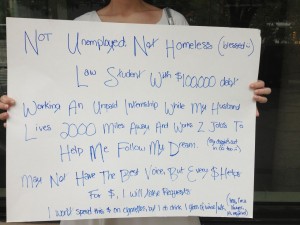 Not Unemployed Not Homeless (blessed~)
Law Student With $100,000 debt
Working An Unpaid Internship While My Husband
Lives 2000 Miles Away And Works 2 Jobs To
Help Me Follow My Dream.
May Not Have The Best Voice, But Every $ Helps
For $, I Will Take Requests
I won't spend this $ on cigarettes, but I do drink 1 glass of wine/wk.